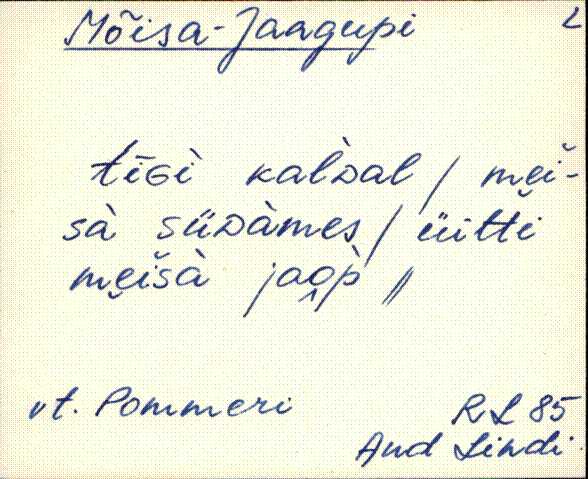 Mõisa-Jaagupi L
tīGì kaĺ̀Dal / me̮i-
sà süDàmes / üitti
me̮išà jao̭p̀ //
vt. Pommeri
RL 85
And Lindi